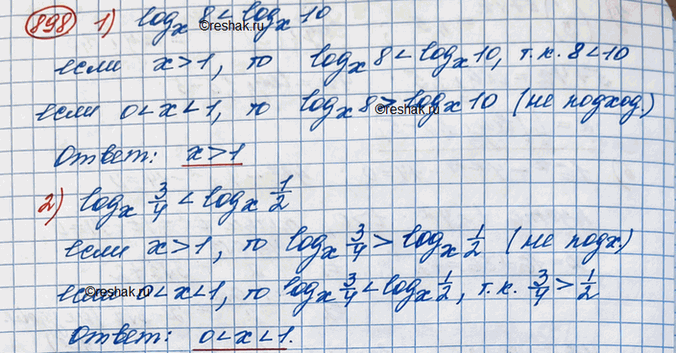 898 1) log_x 8 < log_x 10
если x>1, то log_x 8 < log_x 10, т.к. 8<10
если 0<x<1, то log_x 8 > log_x 10 (не подход.)
Ответ: x>1
2) log_x 3/4 < log_x 1/2
если x>1, то log_x 3/4 > log_x 1/2 (не подх)
если 0<x<1, то log_x 3/4 < log_x 1/2, т.к. 3/4 > 1/2
Ответ: 0<x<1.
©reshak.ru
©reshak.ru
©reshak.ru